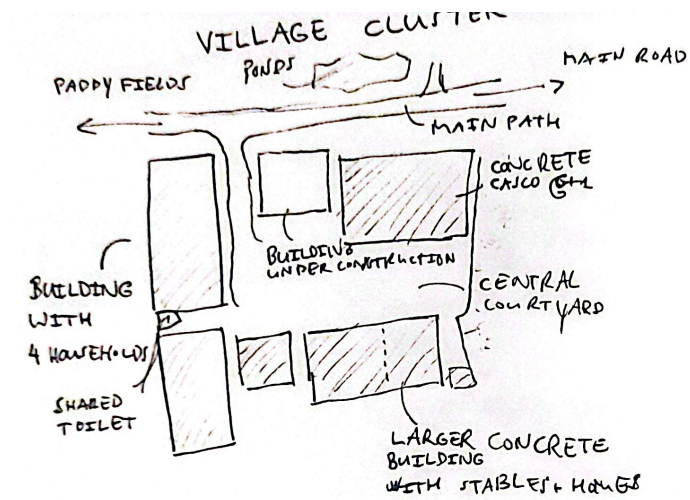 VILLAGE CLUSTER
PONDS
MAIN ROAD
PADDY FIELDS
MAIN PATH
CONCRETE
CASCO G+1
BUILDING
UNDER CONSTRUCTION
CENTRAL
COURTYARD
BUILDING
WITH
4 HOUSEHOLDS
SHARED
TOILET
LARGER CONCRETE
BUILDING
WITH STABLES + HOMES